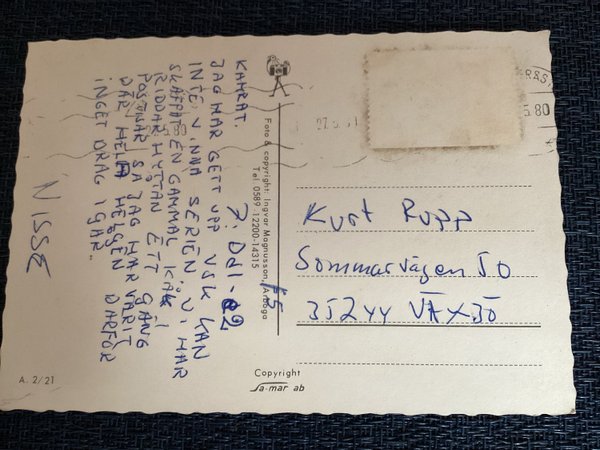 KAMRAT.
JAG HAR GETT UPP VSK KAN
INTE VINNA SERIEN. VI HAR
SKAFFAT EN GAMMAL KÅK I
RIDDARHYTTAN ETT GÄNG
SÅ JAG HAR VARIT
DÄR HELA HELGEN DÄRFÖR
INGET DRAG IGÅR.
NISSE
Foto & copyright: Ingvar Magnusson, Arboga
Tel. 0589-12200-14315
5.80
Kurt Rupp
Sommarvägen 50
352 44 VÄXJÖ
A. 2/21
Copyright
Sa-mar ab